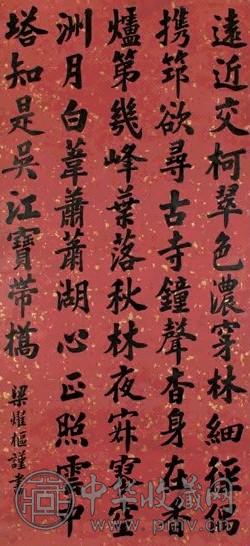 遠近交柯翠色濃穿林細徑偶
携筇欲尋古寺鐘聲杳身在香
爐第幾峰葉落秋林夜寂寥蘆
洲月白葦蕭蕭湖心正照雲中
塔知是吳江寶帶橋
梁燿樞謹書
中华收藏网
www.pmiv.cn